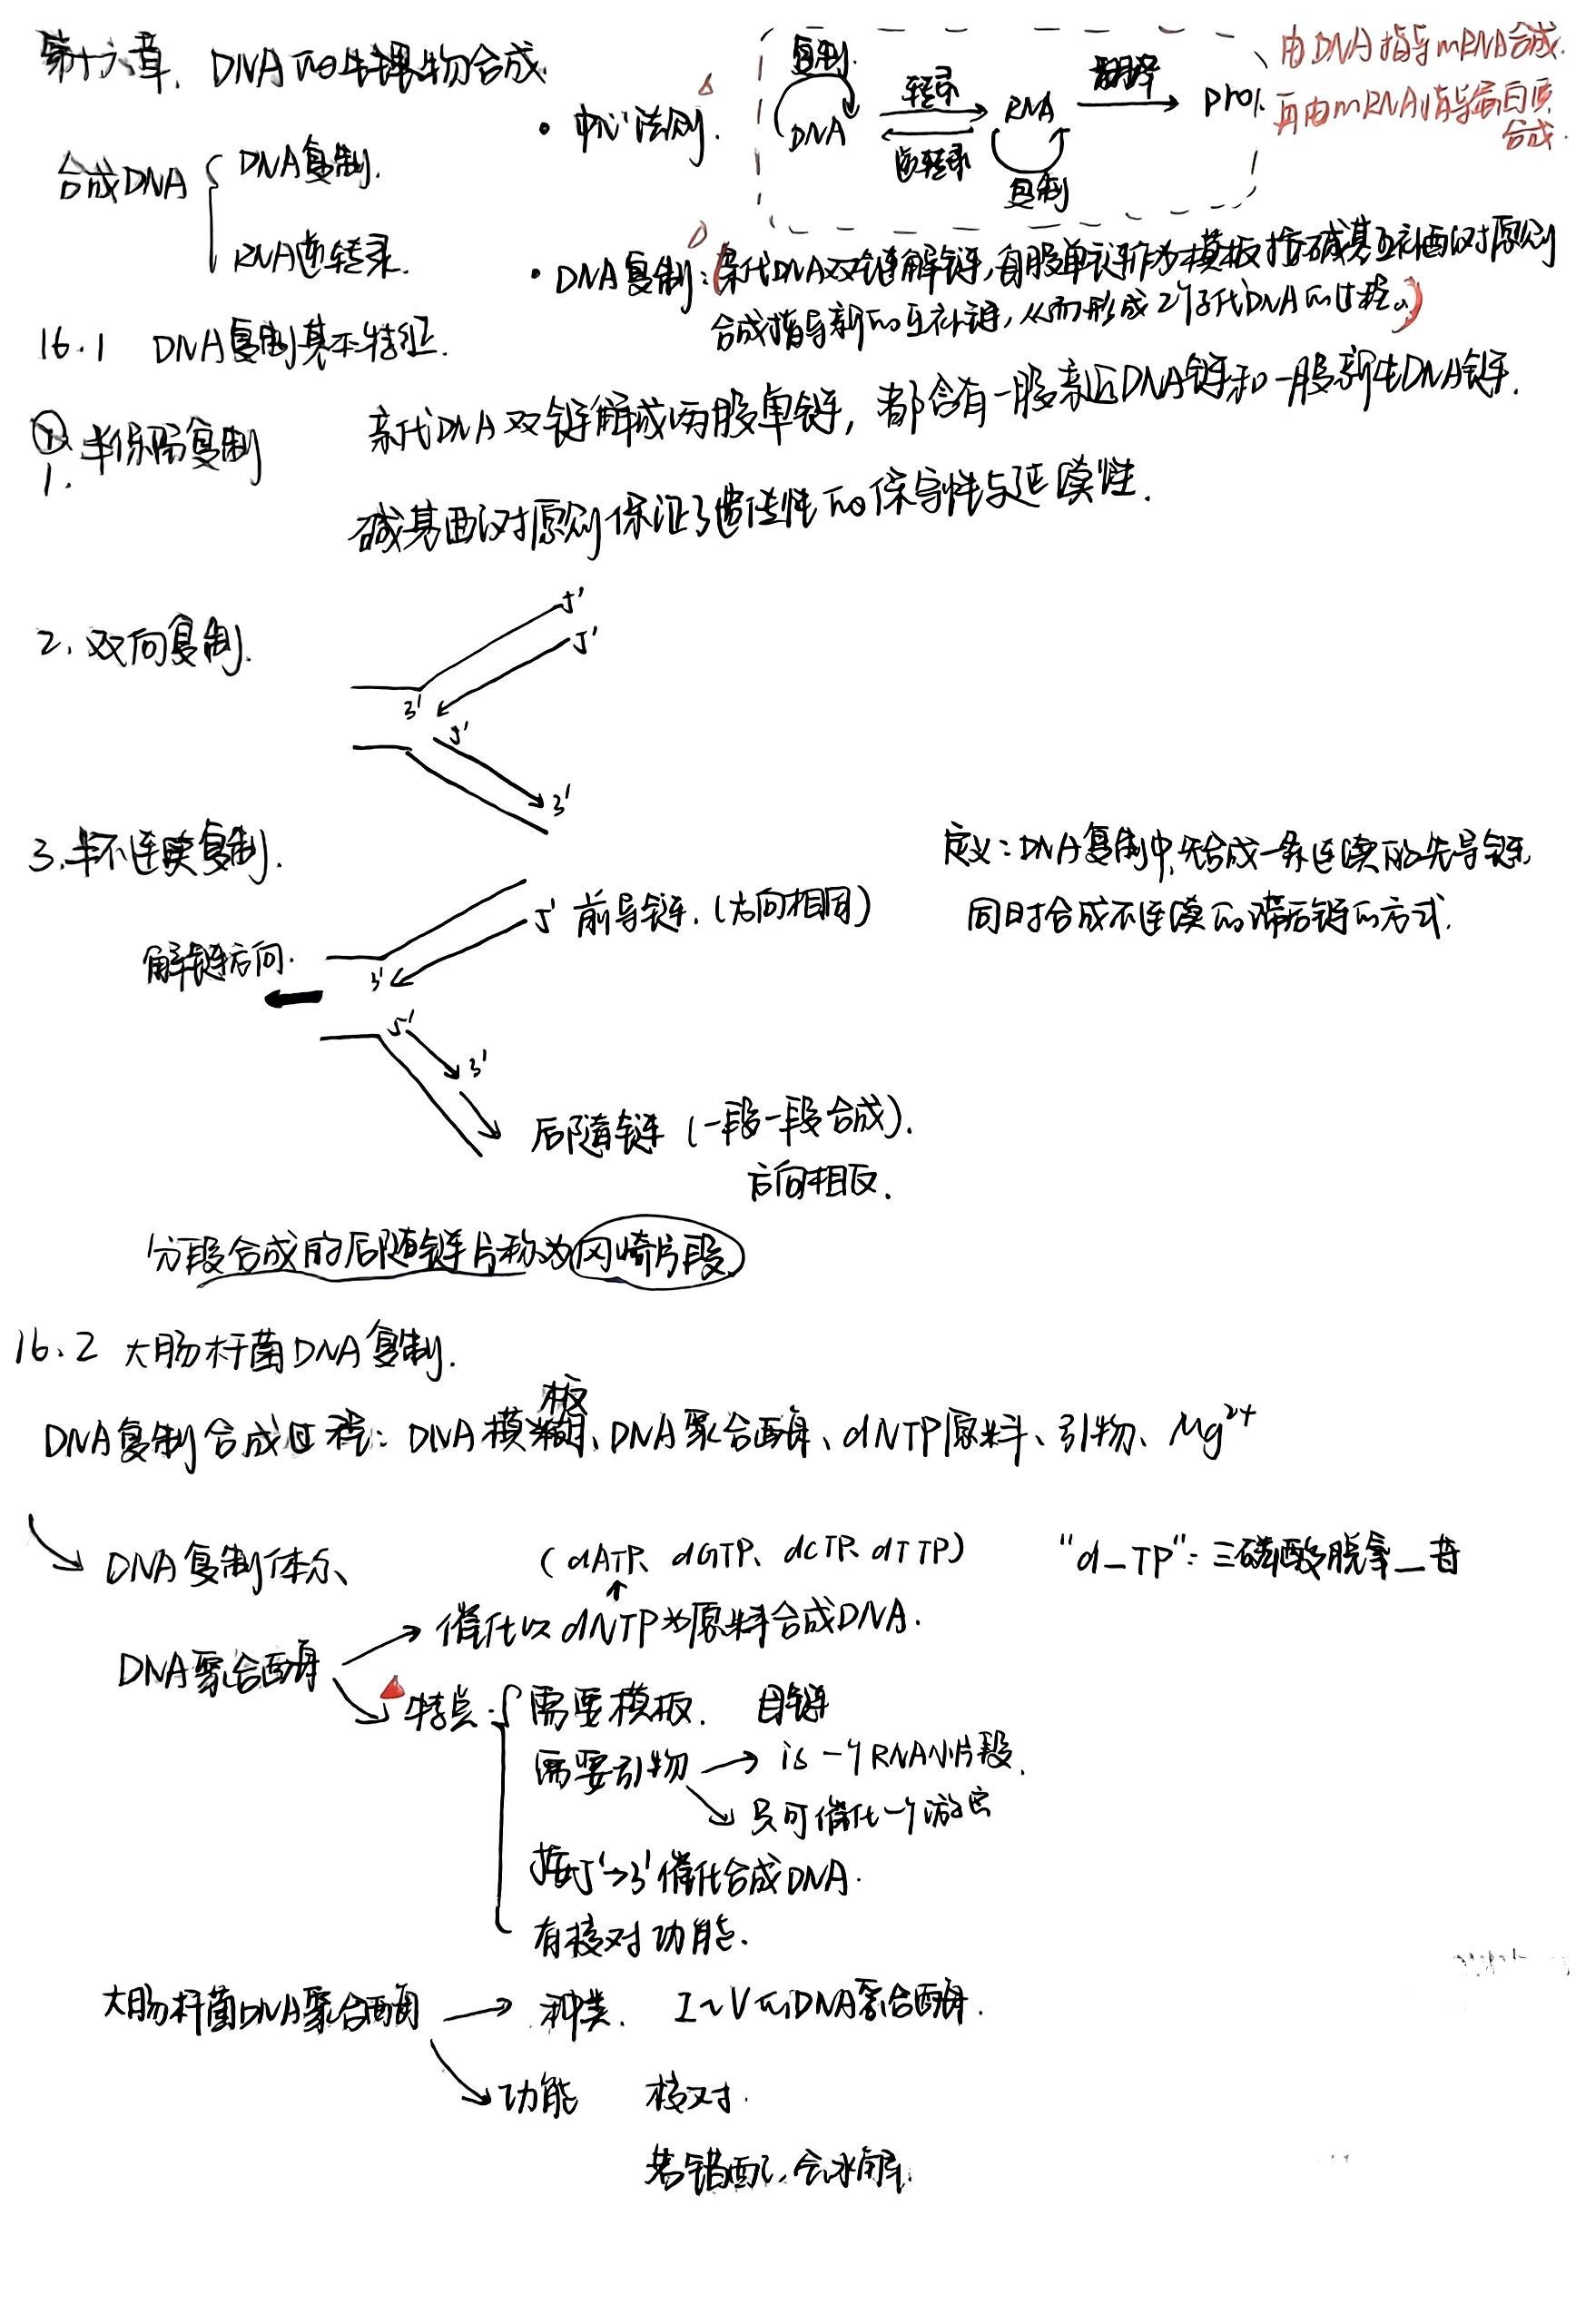 第十六章. DNA的生物合成.
复制.
DNA
转录
逆转录
RNA
复制
翻译
prot.
由DNA指导mRNA合成.
再由mRNA指导蛋白质
合成.
• 中心法则.
合成DNA
DNA复制.
RNA逆转录.
• DNA复制:(亲代DNA双链解链,每股单链作为模板按碱基互补配对原则
合成指导新的互补链,从而形成2个子代DNA的过程。)
16.1 DNA复制基本特征.
1. 半保留复制
亲代DNA双链解成两股单链, 都含有一股亲代DNA链和一股新生DNA链.
碱基配对原则保证了遗传性的保守性与延续性.
2. 双向复制.
5'
5'
3'
5'
3'
3.半不连续复制.
定义:DNA复制中,先合成一条连续的先导链,
同时合成不连续的滞后链的方式.
5' 前导链.(方向相同)
解链方向.
3'
5'
3'
后随链(一段一段合成).
方向相反.
分段合成的后随链片称为冈崎片段
16.2 大肠杆菌DNA复制.
板
DNA复制合成过程: DNA模、DNA聚合酶、dNTP原料、引物、Mg²⁺
DNA复制体系、
(dATP、dGTP、dCTP、dTTP)
"d_TP":三磷酸脱氧_苷
催化以dNTP为原料合成DNA.
DNA聚合酶
特点:
需要模板. 母链
需要引物 → is 一个RNA小片段.
只可催化一个游离
按5'→3'催化合成DNA.
有核对功能.
大肠杆菌DNA聚合酶 → 种类. I~V的DNA聚合酶.
功能 核对.
若错配,会水解.